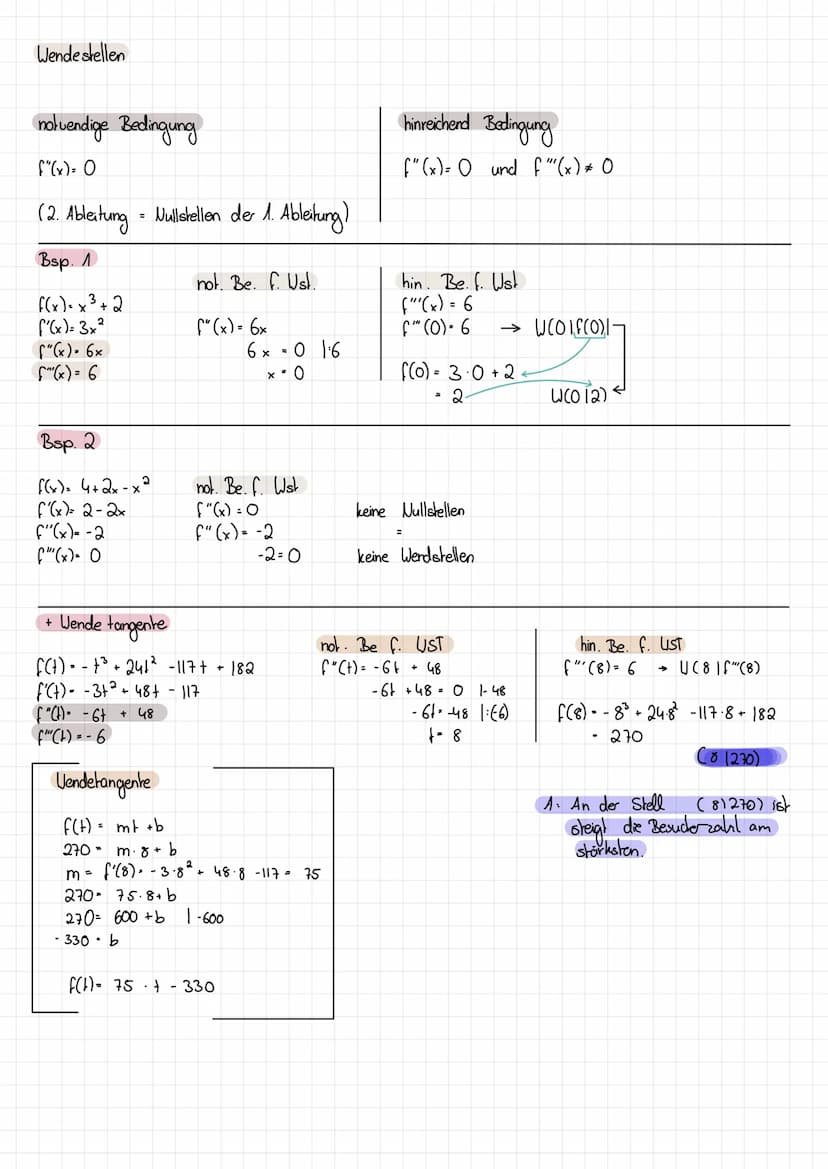 Wendestellen
notwendige Bedingung
f''(x) = 0
(2. Ableitung = Nullstellen der 1. Ableitung)
hinreichend Bedingung
f''(x) = 0 und f'''(x) ≠ 0
Bsp. 1
f(x) = x³ + 2
f'(x) = 3x²
f''(x) = 6x
f'''(x) = 6
not. Be. f. Wst.
f''(x) = 6x
6x = 0 |:6
x = 0
hin. Be. f. Wst
f'''(x) = 6
f'''(0) = 6 → W(0|f(0)|
f(0) = 3·0 + 2
= 2 W(0|2)
Bsp. 2
f(x) = 4 + 2x - x²
f'(x) = 2 - 2x
f''(x) = -2
f'''(x) = 0
not. Be. f. Wst
f''(x) = 0
f''(x) = -2
-2 = 0
keine Nullstellen
=
keine Wendstellen
+ Wendetangente
f(t) = -t³ + 24t² - 117t + 182
f'(t) = -3t² + 48t - 117
f''(t) = -6t + 48
f'''(t) = -6
not. Be f. WST
f''(t) = -6t + 48
-6t + 48 = 0 |-48
-6t = -48 |:(-6)
t = 8
hin. Be. f. WST
f'''(8) = 6 → W(8|f'''(8)
f(8) = -8³ + 24·8² - 117·8 + 182
= 270
(8|270)
1. An der Stell (8|270) ist
steigt die Besucherzahl am
stärksten.
Wendetangente
f(t) = mt + b
270 = m·8 + b
m = f'(8) = -3·8² + 48·8 - 117 = 75
270 = 75·8 + b
270 = 600 + b |-600
-330 = b
f(t) = 75·t - 330